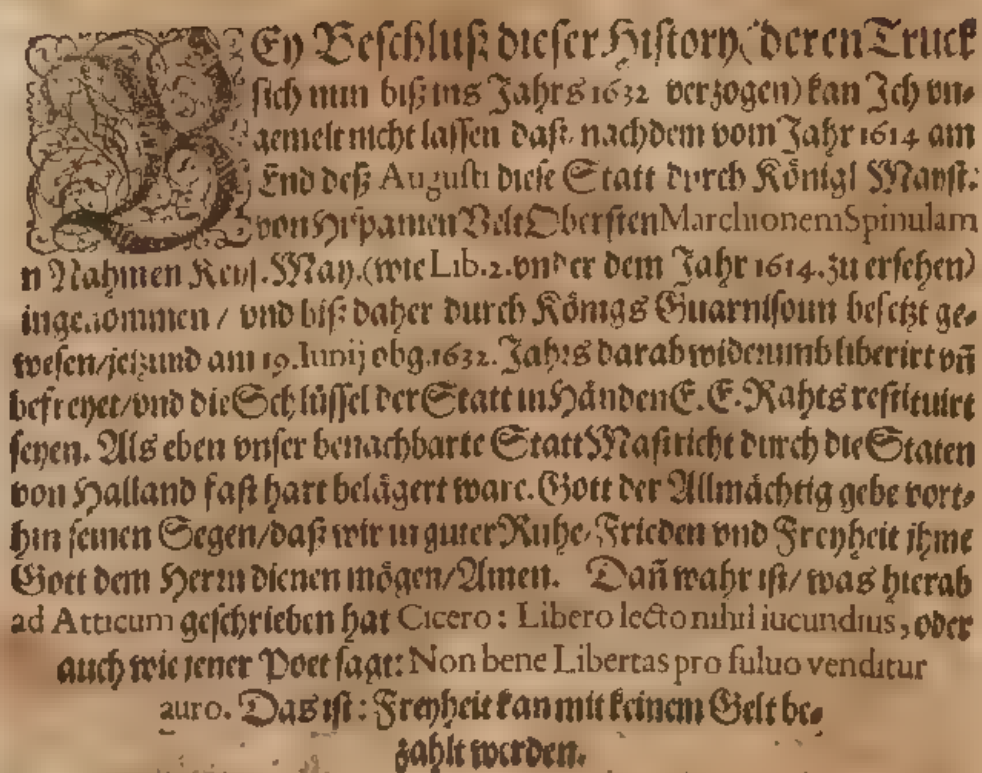 BEy Beschluß dieser History (deren Truck
sich nun biß ins Jahrs 1632 verzogen) kan Ich vn-
gemelt nicht lassen daß, nachdem vom Jahr 1614 am
End deß Augusti diese Statt durch Königl Mayst.
von Hispanien Velt Obersten Marchionem Spinulam
n Nahmen Keys. May. (wie Lib. 2. vnder dem Jahr 1614. zu ersehen)
ingenommen / vnd biß daher durch Königs Guarnisoun besetzt ge-
wesen/jetzund am 19. Iunij obg. 1632. Jahrs darab widerumb liberirt vñ
befreyet/vnd die Schlüssel der Statt in Händen E. E. Rahts restituirt
seyen. Als eben vnser benachbarte Statt Mastricht durch die Staten
von Halland fast hart belägert ware. Gott der Allmächtig gebe vort-
hin seinen Segen/daß wir in guter Ruhe, Frieden vnd Freyheit ihme
Gott dem Herrn dienen mögen/Amen. Dañ wahr ist/ was hierab
ad Atticum geschrieben hat Cicero: Libero lecto nihil iucundius, oder
auch wie jener Poet sagt: Non bene Libertas pro fuluo venditur
auro. Das ist: Freyheit kan mit keinem Gelt be-
zahlt werden.